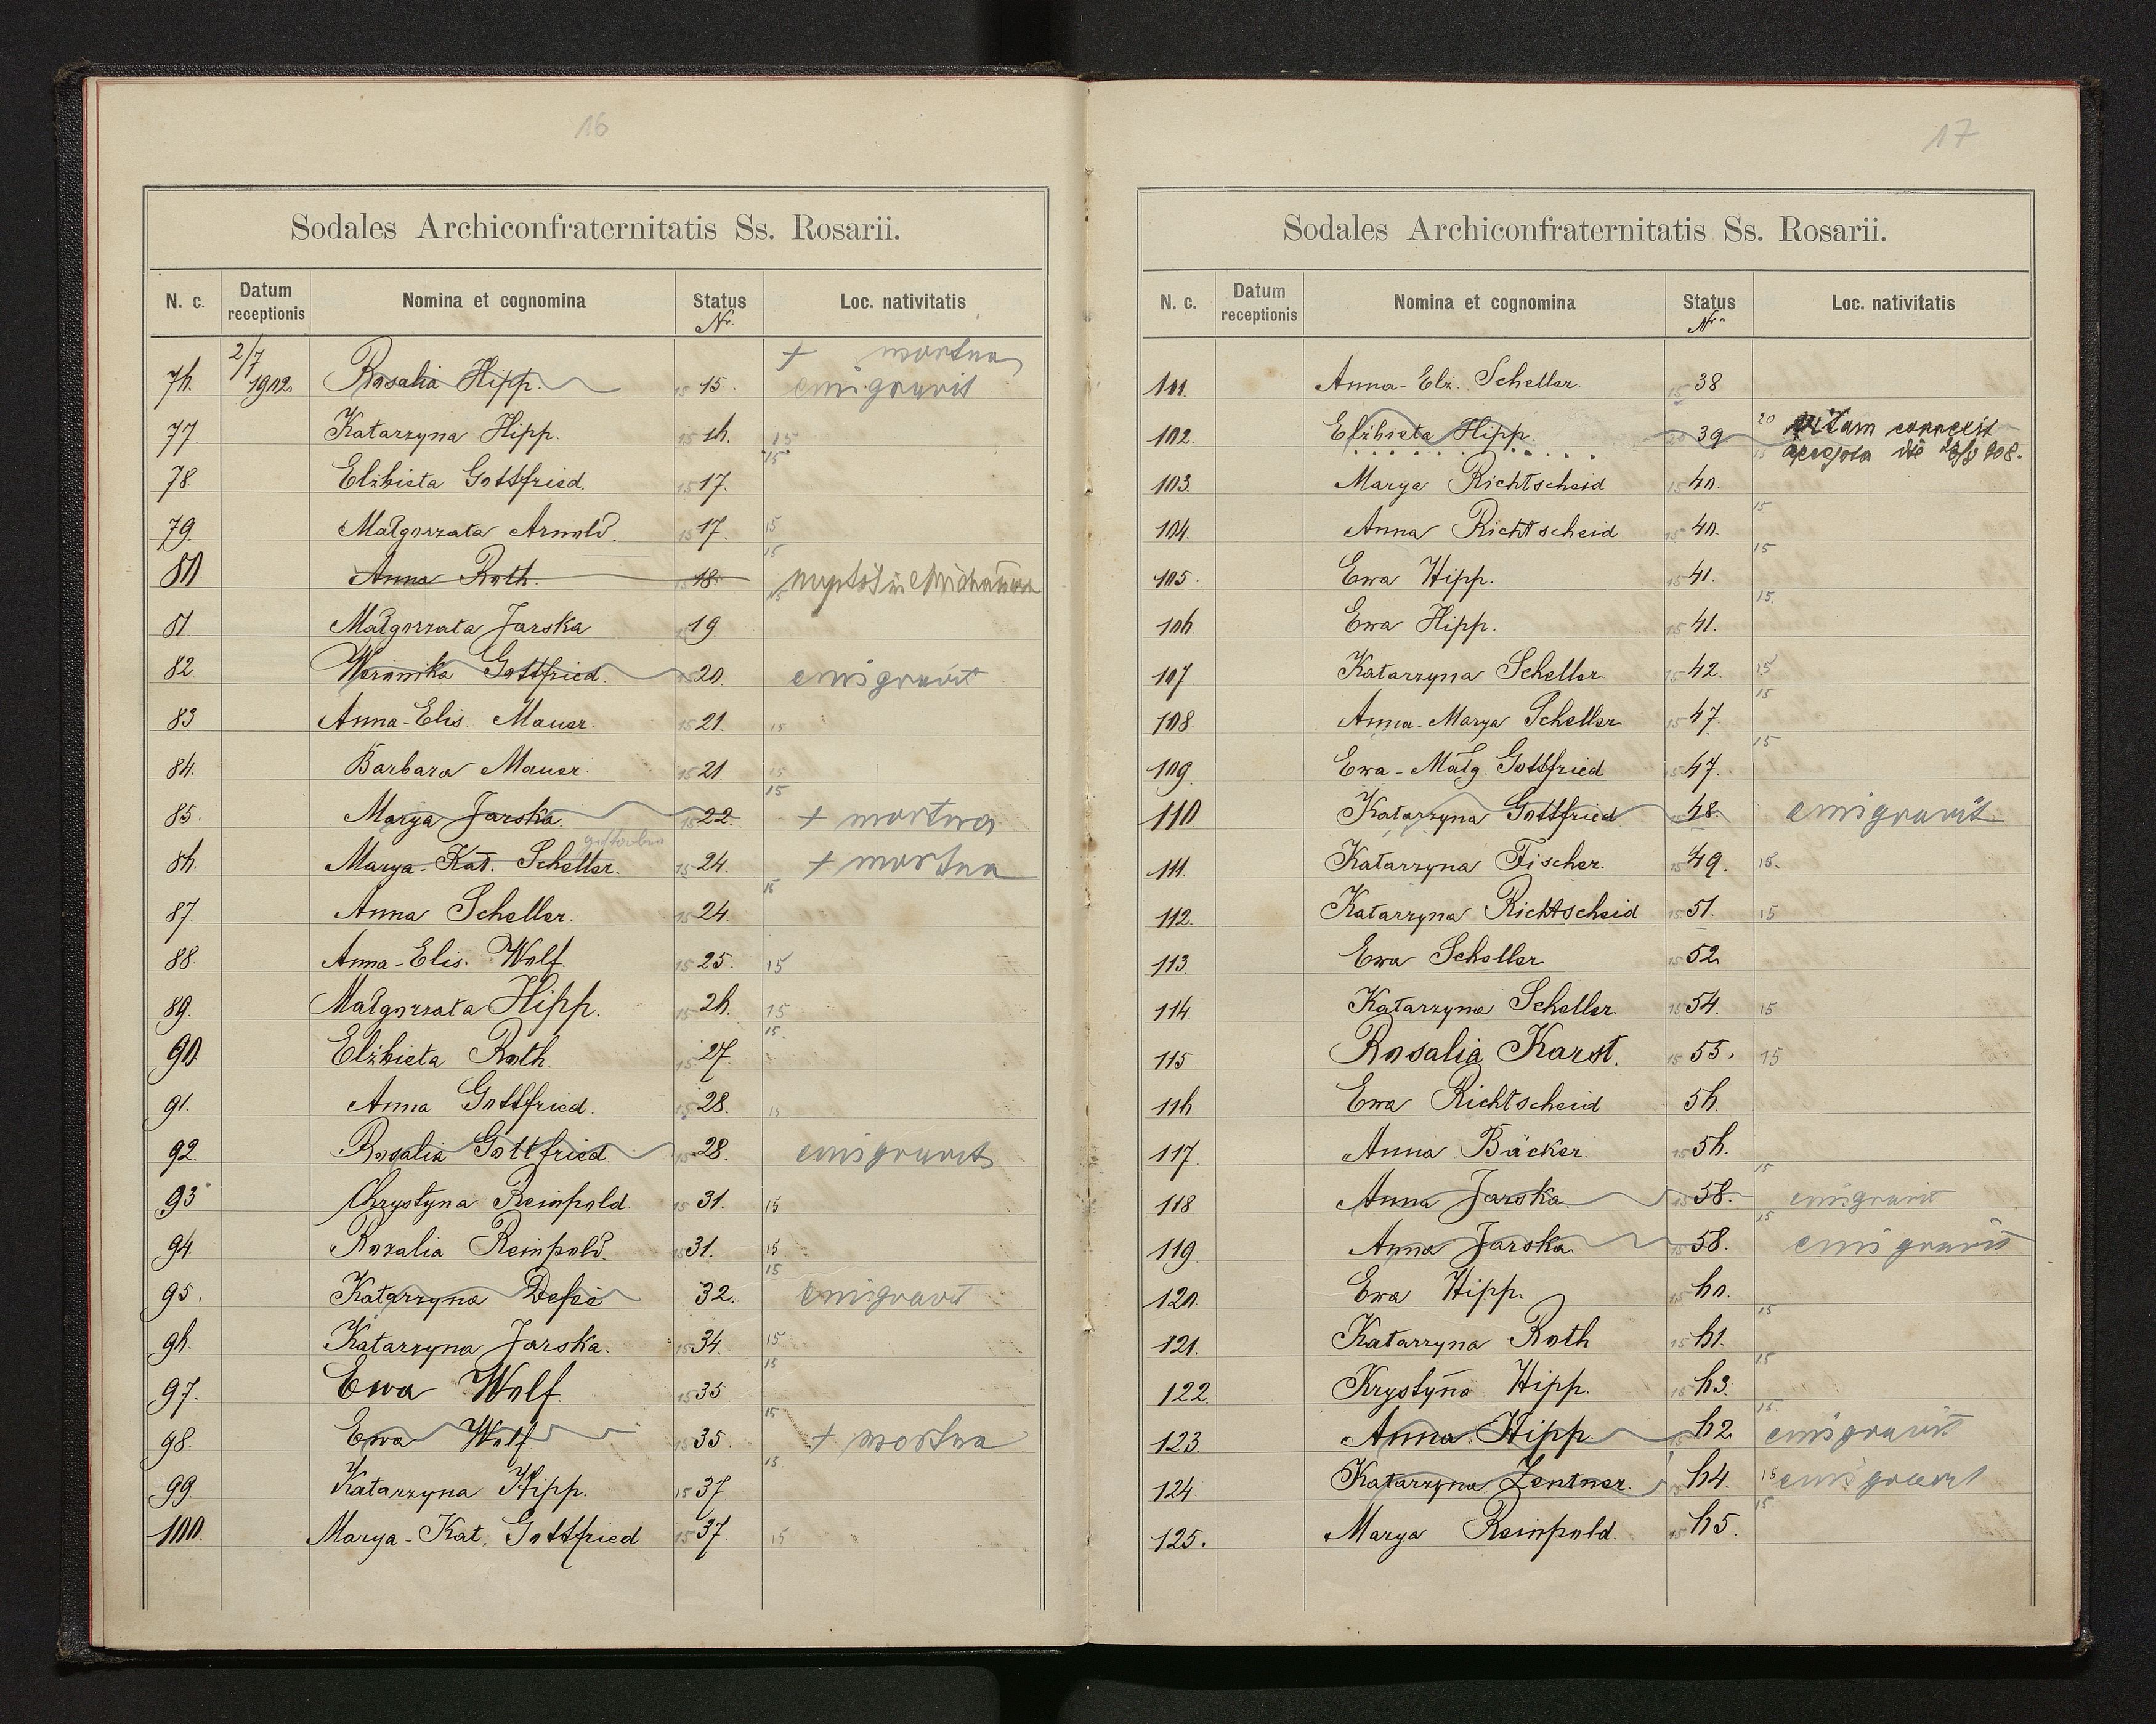 16
Sodales Archiconfraternitatis Ss. Rosarii.
N. c. Datum receptionis Nomina et cognomina Status Nr. Loc. nativitatis
2/7 + mortua
76. 1902. Rosalia Hipp. 15 15. emigravit
77. Katarzyna Hipp. 15 16. 15
15
78. Elżbieta Gottfried. 15 17.
79. Małgorzata Arnold. 15 17. 15
15
80. Anna Roth. 18.
15
81 Małgorzata Jarska 19.
82. Weronika Gottfried. 20. emigravit
83. Anna-Elis. Mauer. 15 21. 15
84. Barbara Mauer. 15 21 15
15
85. Marya Jarska. 15 22. + mortua
86. Marya-Kat. Scheller. 15 24. + mortua
15
87. Anna Scheller. 15 24.
88. Anna-Elis. Wolf. 15 25. 15
89. Małgorzata Hipp. 15 26. 15
15
90. Elżbieta Roth. 15 27.
91. Anna Gottfried. 15 28. 15
92. Rosalia Gottfried. 15 28. emigravit
93 Chrystyna Reinpold. 15 31. 15
94. Rozalia Reinpold. 15 31. 15
15
95. Katarzyna 32. emigravit
96. Katarzyna Jarska. 15 34. 15
15
97. Ewa Wolf. 15 35
15
98. Ewa Wolf. 15 35. + mortua
15
99. Katarzyna Hipp. 15 37
100. Marya-Kat. Gottfried 15 37. 15
17
Sodales Archiconfraternitatis Ss. Rosarii.
N. c. Datum receptionis Nomina et cognomina Status Nr. Loc. nativitatis
101. Anna-Elz. Scheller. 15 38
102. Elżbieta Hipp. 20 39. 20 vitam correxit
15 die 908.
103. Marya Richtscheid 15 40.
15
104. Anna Richtscheid 15 40.
15
105. Ewa Hipp. 15 41.
15.
106. Ewa Hipp. 15 41.
107. Katarzyna Scheller. 15 42. 15
15
108. Anna-Marya Scheller 15 47.
15
109. Ewa-Małg. Gottfried 15 47.
110 Katarzyna Gottfried 48. emigravit
111. Katarzyna Fischer. 15 49. 15.
112. Katarzyna Richtscheid 15 51. 15
113. Ewa Scheller 15 52.
114. Katarzyna Scheller. 15 54. 15
115 Rosalia Karst. 15 55. 15
116. Ewa Richtscheid 56.
117. Anna Bäcker. 15 56.
15
118 Anna Jarska 15 58. emigravit
15
119. Anna Jarska. 58. emigravit
120. Ewa Hipp. 15 60.
15
121. Katarzyna Roth 15 61.
15
122. Krystyna Hipp. 15 63.
15.
123. Anna Hipp. 15 62. emigravit
124. Katarzyna Zentner. 15 64. 15 emigravit
15
125. Marya Reinpold. 15 65.